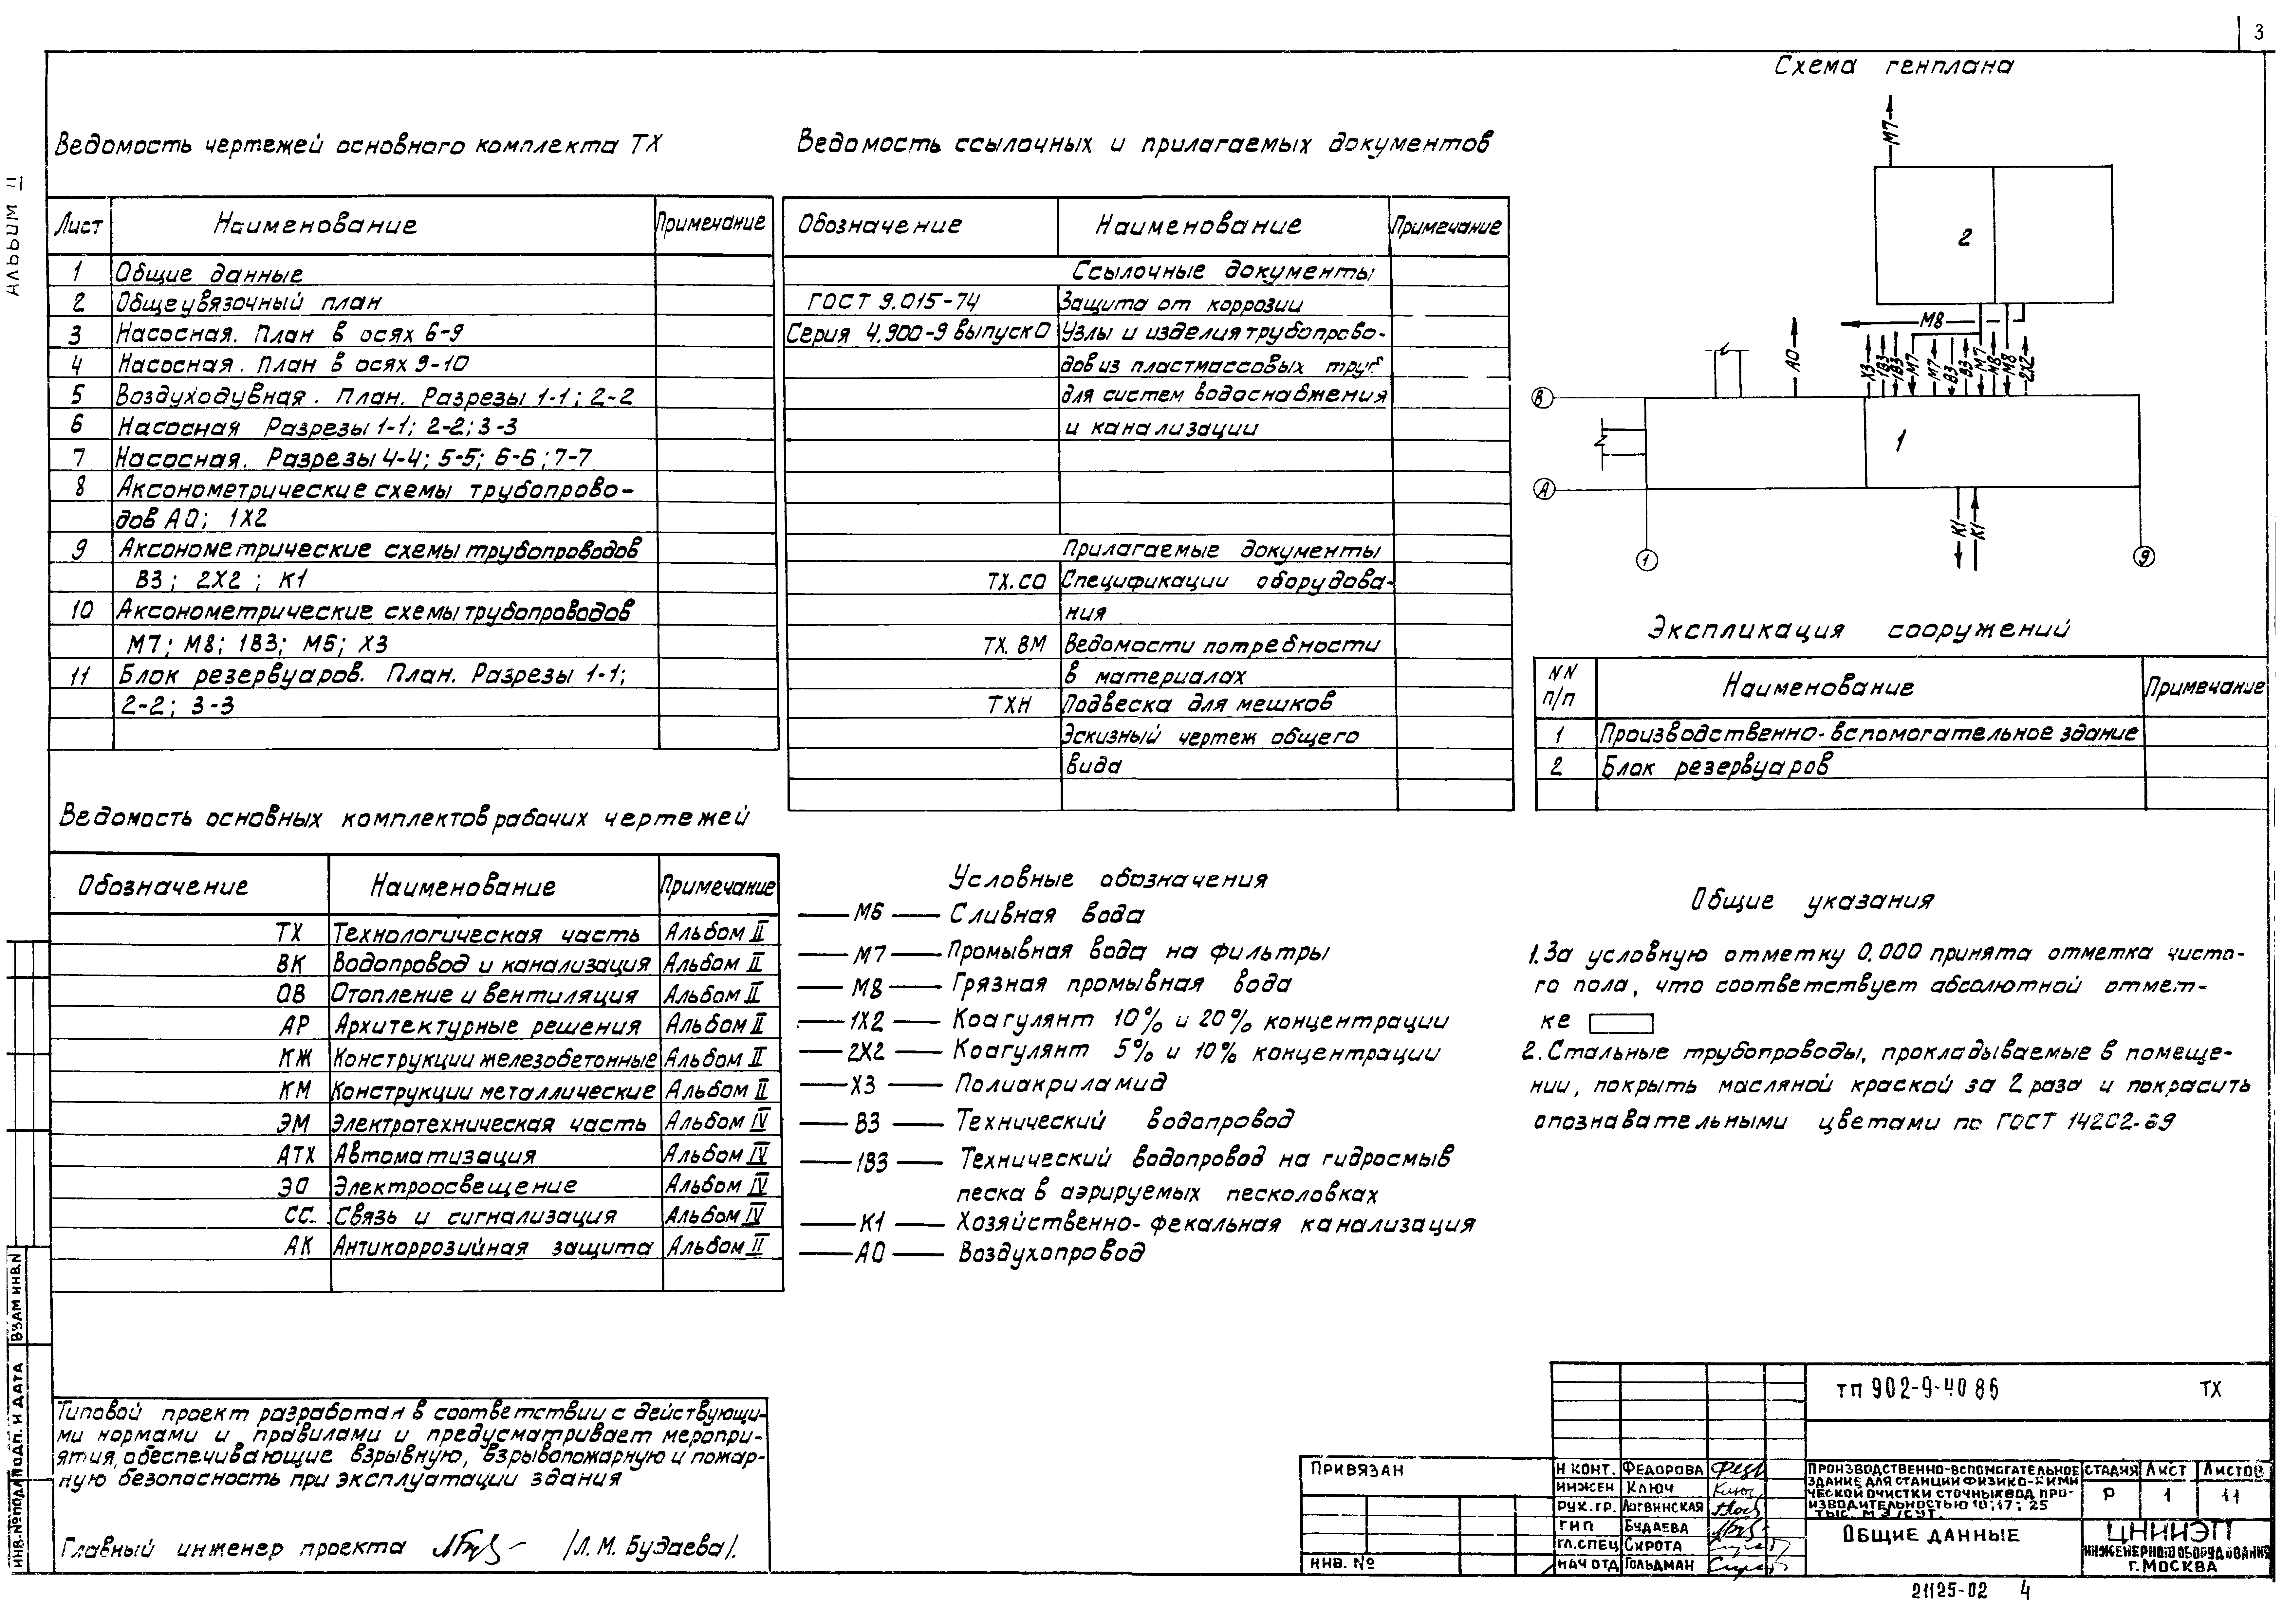 3
Альбом II
Ведомость чертежей основного комплекта ТХ
Лист Наименование Примечание
1 Общие данные
2 Общеувязочный план
3 Насосная. План в осях 6-9
4 Насосная. План в осях 9-10
5 Воздуходувная. План. Разрезы 1-1; 2-2
6 Насосная Разрезы 1-1; 2-2; 3-3
7 Насосная. Разрезы 4-4; 5-5; 6-6; 7-7
8 Аксонометрические схемы трубопрово-
дов А0; 1Х2
9 Аксонометрические схемы трубопроводов
В3; 2Х2; К1
10 Аксонометрические схемы трубопроводов
М7; М8; 1В3; М6; Х3
11 Блок резервуаров. План. Разрезы 1-1;
2-2; 3-3
Ведомость ссылочных и прилагаемых документов
Обозначение Наименование Примечание
Ссылочные документы
ГОСТ 9.015-74 Защита от коррозии
Серия 4.900-9 выпуск 0 Узлы и изделия трубопрово-
дов из пластмассовых труб
для систем водоснабжения
и канализации
Прилагаемые документы
ТХ.СО Спецификации оборудова-
ния
ТХ.ВМ Ведомости потребности
в материалах
ТХН Подвеска для мешков
Эскизный чертеж общего
вида
Схема генплана
М7
2
М8
А0 Х3 1В3 В3 М7 М7 В3 В3 М7 М8 М8 2Х2
В
1
А
К1 К1
1 9
Экспликация сооружений
NN п/п Наименование Примечание
1 Производственно-вспомогательное здание
2 Блок резервуаров
Ведомость основных комплектов рабочих чертежей
Обозначение Наименование Примечание
ТХ Технологическая часть Альбом II
ВК Водопровод и канализация Альбом II
ОВ Отопление и вентиляция Альбом II
АР Архитектурные решения Альбом II
КЖ Конструкции железобетонные Альбом II
КМ Конструкции металлические Альбом II
ЭМ Электротехническая часть Альбом IV
АТХ Автоматизация Альбом IV
ЭО Электроосвещение Альбом IV
СС Связь и сигнализация Альбом IV
АК Антикоррозийная защита Альбом II
Условные обозначения
М6 Сливная вода
М7 Промывная вода на фильтры
М8 Грязная промывная вода
1Х2 Коагулянт 10% и 20% концентрации
2Х2 Коагулянт 5% и 10% концентрации
Х3 Полиакриламид
В3 Технический водопровод
1В3 Технический водопровод на гидросмыв
песка в аэрируемых песколовках
К1 Хозяйственно-фекальная канализация
А0 Воздухопровод
Общие указания
1. За условную отметку 0.000 принята отметка чисто-
го пола, что соответствует абсолютной отмет-
ке
2. Стальные трубопроводы, прокладываемые в помеще-
нии, покрыть масляной краской за 2 раза и покрасить
опознавательными цветами по ГОСТ 14202-69
Типовой проект разработан в соответствии с действующи-
ми нормами и правилами и предусматривает меропри-
ятия, обеспечивающие взрывную, взрывопожарную и пожар-
ную безопасность при эксплуатации здания
Главный инженер проекта /Л.М. Будаева/.
ВЗАМ ИНВ.N
ПОДП. И ДАТА
ИНВ.№ ПОДЛ
ПРИВЯЗАН
ИНВ. №
Н КОНТ. ФЕДОРОВА
ИНЖЕН КЛЮЧ
РУК.ГР. ЛОГВИНСКАЯ
ГИП БУДАЕВА
ГЛ.СПЕЦ СИРОТА
НАЧ ОТД ГОЛЬДМАН
ТП 902-9-40 86 ТХ
ПРОИЗВОДСТВЕННО-ВСПОМОГАТЕЛЬНОЕ
ЗДАНИЕ ДЛЯ СТАНЦИИ ФИЗИКО-ХИМИ
ЧЕСКОЙ ОЧИСТКИ СТОЧНЫХ ВОД ПРО-
ИЗВОДИТЕЛЬНОСТЬЮ 10; 17; 25
ТЫС. М3/СУТ.
СТАДИЯ ЛИСТ ЛИСТОВ
Р 1 11
ОБЩИЕ ДАННЫЕ
ЦНИИЭП
ИНЖЕНЕРНОГО ОБОРУДОВАНИЯ
Г. МОСКВА
21125-02 4